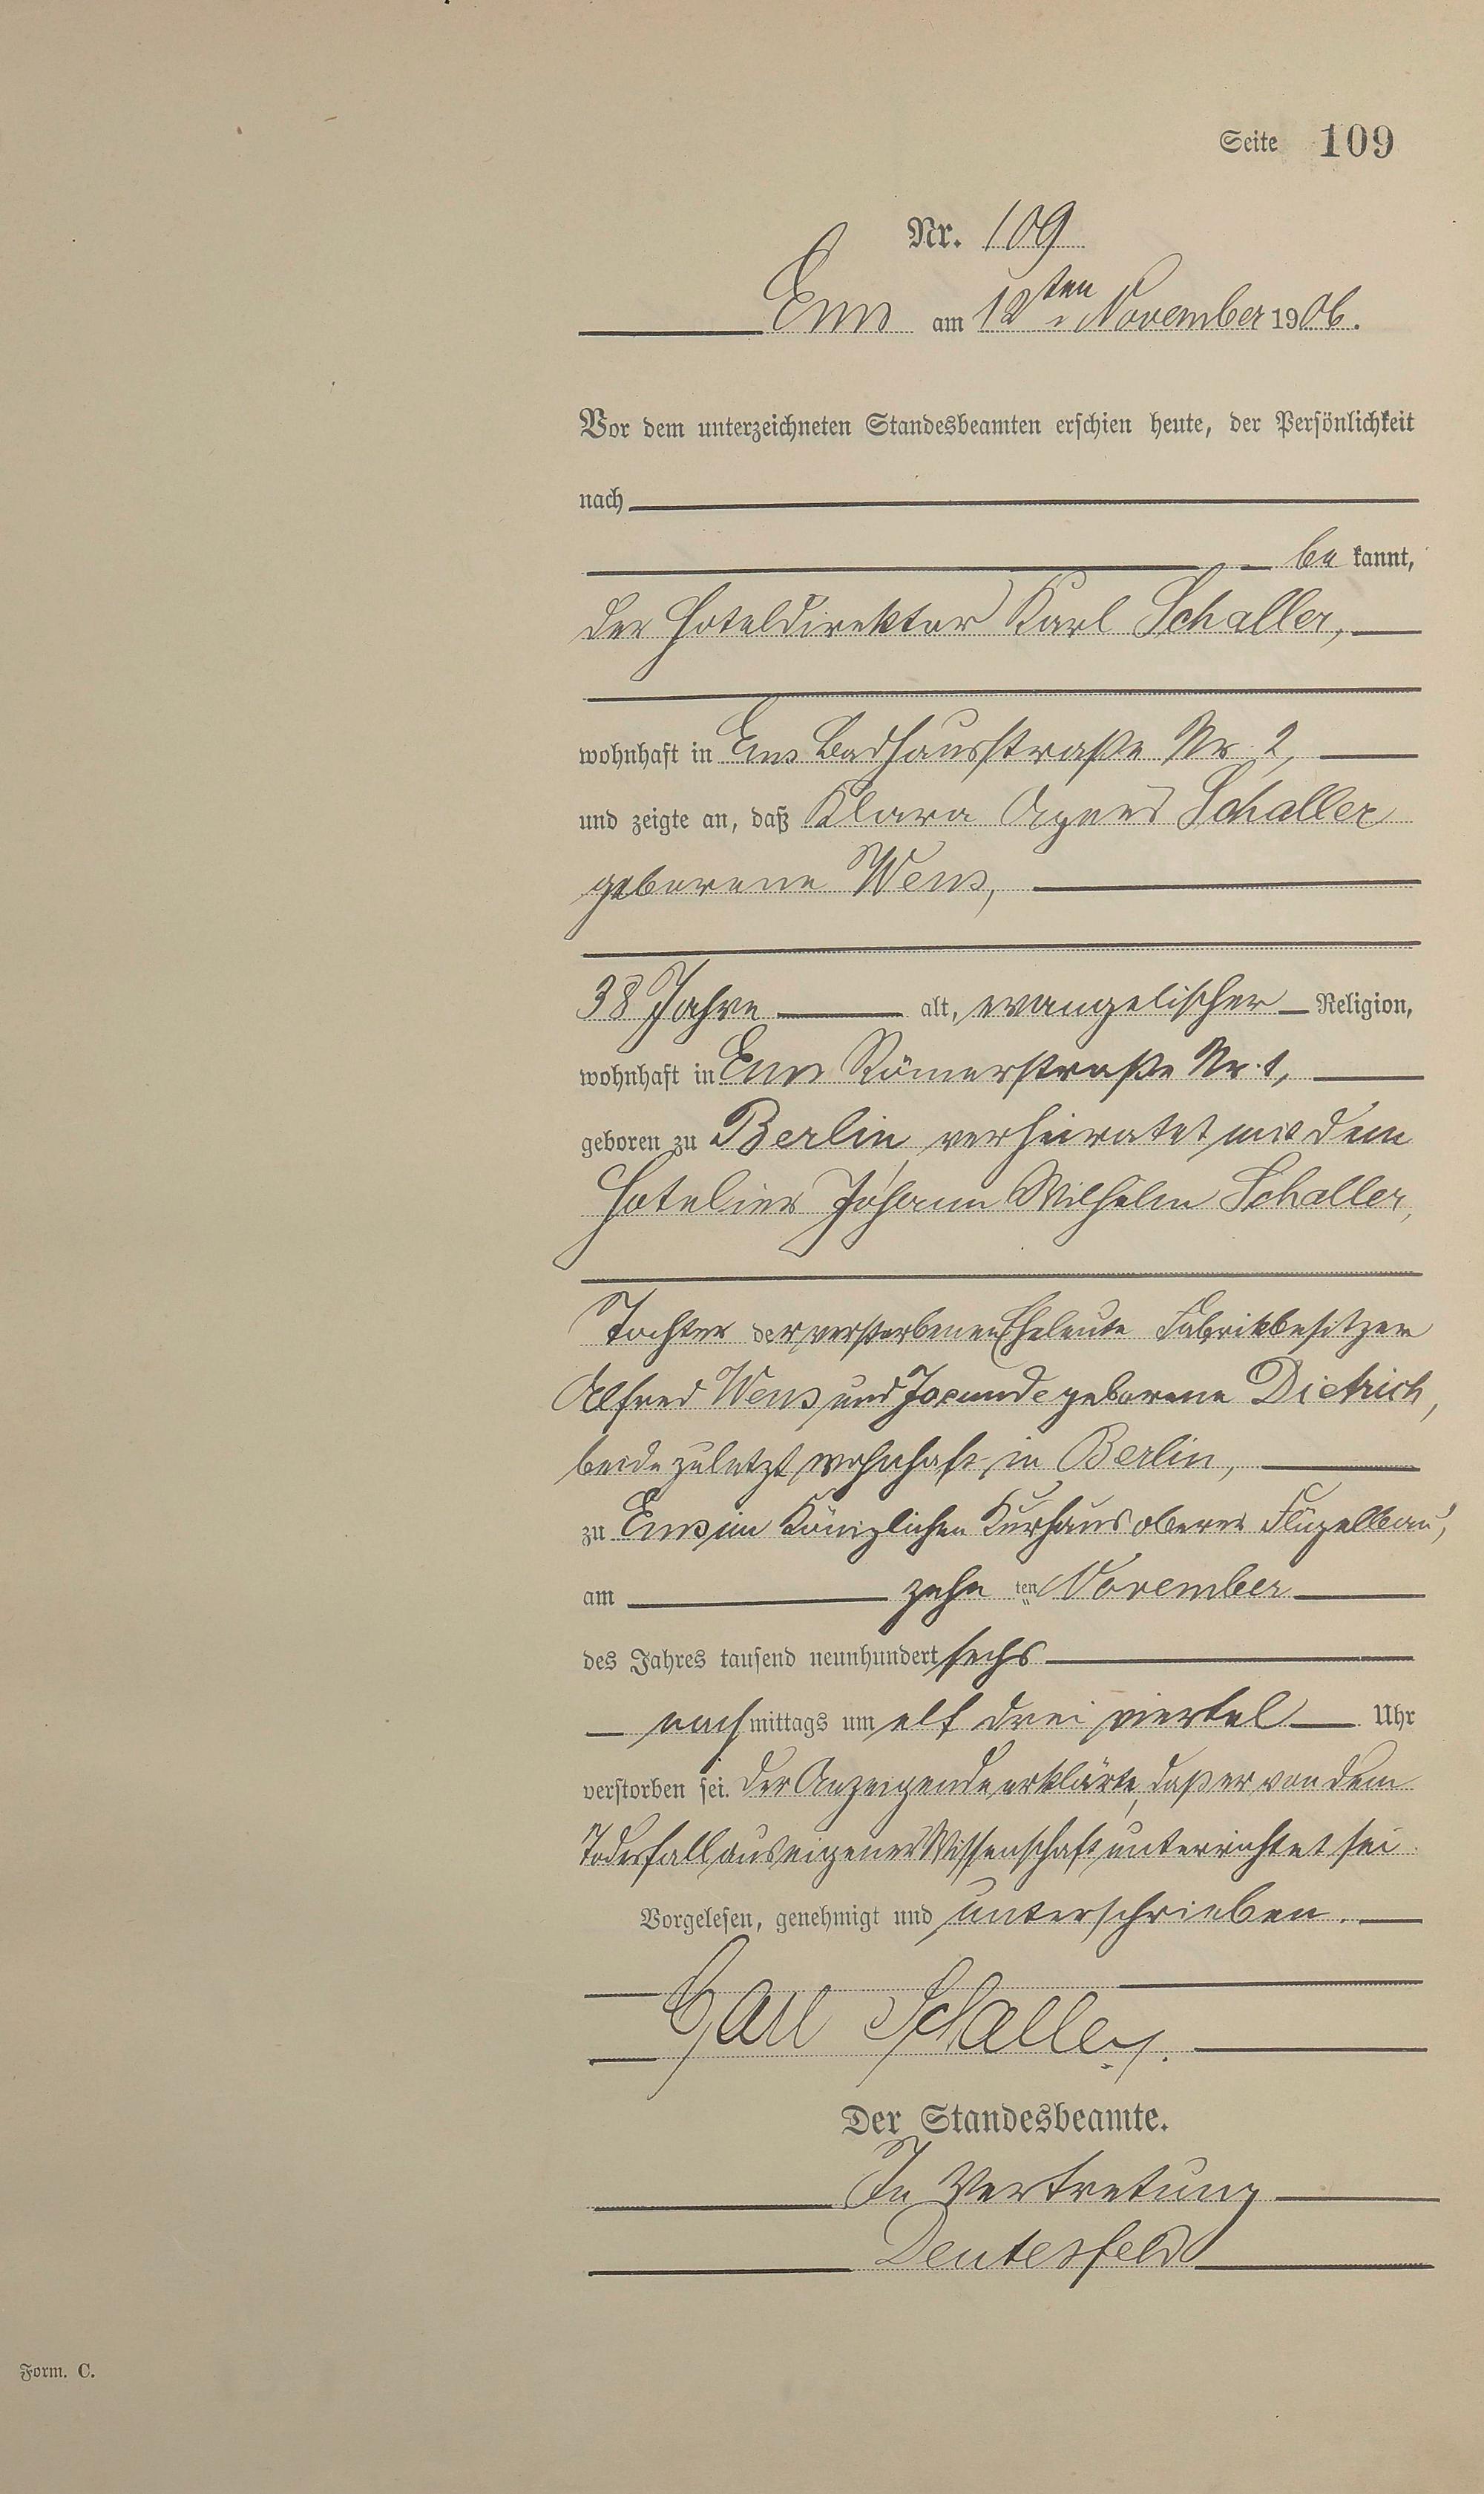 Seite 109
Nr. 109
Ems am 12ten November 1906.
Vor dem unterzeichneten Standesbeamten erschien heute, der Persönlichkeit
nach
be kannt,
der Hoteldirektor Karl Schaller,
wohnhaft in Ems Badhausstraße Nr. 2,
und zeigte an, daß Klara Agnes Schaller
geborene Wens,
38 Jahre alt, evangelischer Religion,
wohnhaft in Ems Römerstraße Nr. 1,
geboren zu Berlin, verheiratet mit dem
Hotelier Johann Wilhelm Schaller,
Tochter der verstorbenen Eheleute Fabrikbesitzer
Alfred Wens und Jocunde geborene Dietrich,
beide zuletzt wohnhaft in Berlin,
zu Ems im Königlichen Kurhaus oberer Flügelbau,
am zehn ten November
des Jahres tausend neunhundert sechs
nach mittags um elf drei viertel Uhr
verstorben sei. Der Anzeigende erklärte, daß er von dem
Todesfall aus eigener Wissenschaft unterrichtet sei.
Vorgelesen, genehmigt und unterschrieben.
Carl Schaller.
Der Standesbeamte.
In Vertretung
Deutesfeld
Form. C.